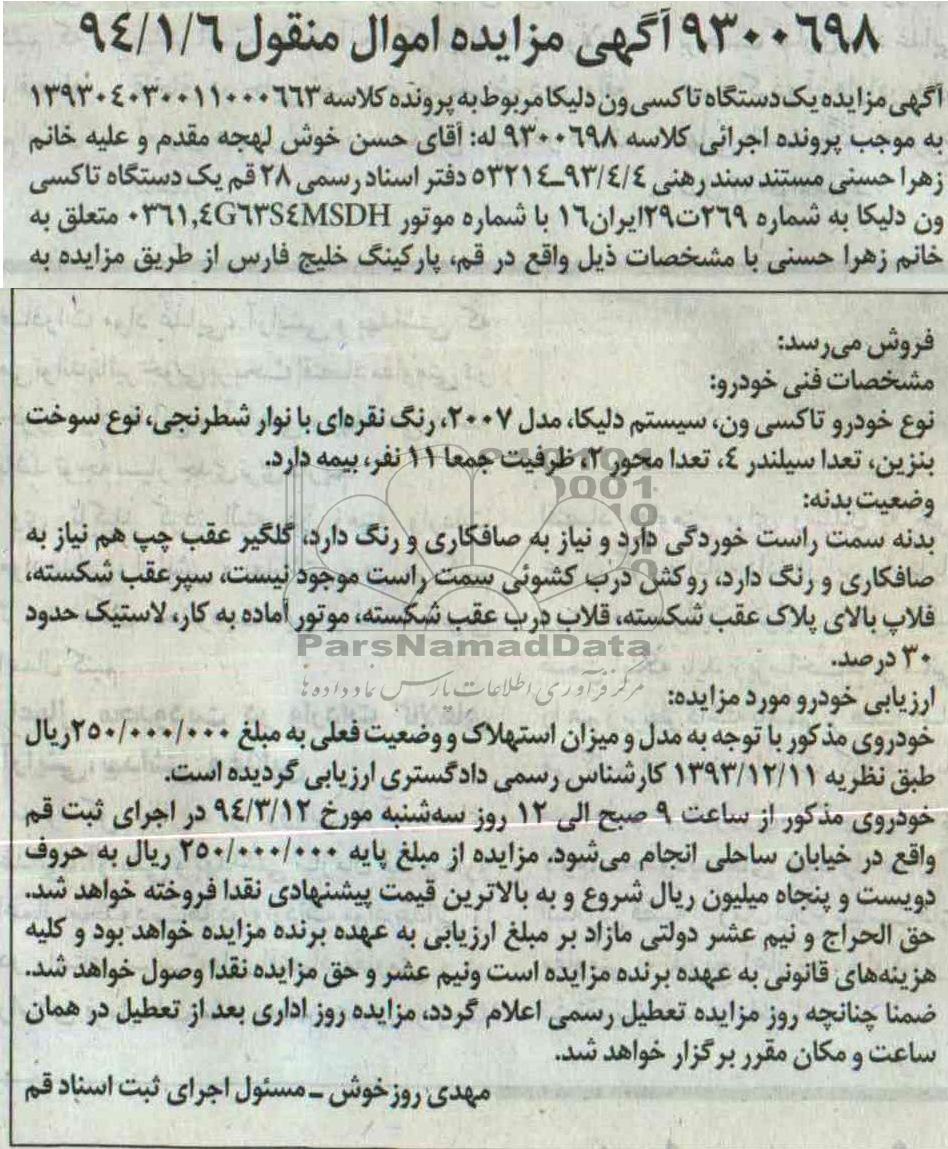 ۹۳۰۰۶۹۸ آگهی مزایده اموال منقول ۹٤/۱/٦
آگهی مزایده یک دستگاه تاکسی ون دلیکا مربوط به پرونده کلاسه ۱۳۹۳۰٤۰۳۰۰۱۱۰۰۰٦٦۳
به موجب پرونده اجرائی کلاسه ۹۳۰۰٦۹۸ له: آقای حسن خوش لهجه مقدم و علیه خانم
زهرا حسنی مستند سند رهنی ۹۳/٤/٤ـ۵۳۲۱٤ دفتر اسناد رسمی ۲۸ قم یک دستگاه تاکسی
ون دلیکا به شماره ۲٦۹ت۲۹ایران۱٦ با شماره موتور ۰۳٦۱,٤G٦۳S٤MSDH متعلق به
خانم زهرا حسنی با مشخصات ذیل واقع در قم، پارکینگ خلیج فارس از طریق مزایده به
فروش می‌رسد:
مشخصات فنی خودرو:
نوع خودرو تاکسی ون، سیستم دلیکا، مدل ۲۰۰۷، رنگ نقره‌ای با نوار شطرنجی، نوع سوخت
بنزین، تعدا سیلندر ٤، تعدا محور ۲، ظرفیت جمعا ۱۱ نفر، بیمه دارد.
وضعیت بدنه:
بدنه سمت راست خوردگی دارد و نیاز به صافکاری و رنگ دارد، گلگیر عقب چپ هم نیاز به
صافکاری و رنگ دارد، روکش درب کشوئی سمت راست موجود نیست، سپرعقب شکسته،
قلاب بالای پلاک عقب شکسته، قلاب درب عقب شکسته، موتور آماده به کار، لاستیک حدود
۳۰ درصد.
ParsNamadData
مرکز فرآوری اطلاعات پارس نماد داده ها
ارزیابی خودرو مورد مزایده:
خودروی مذکور با توجه به مدل و میزان استهلاک و وضعیت فعلی به مبلغ ۲۵۰/۰۰۰/۰۰۰ریال
طبق نظریه ۱۳۹۳/۱۲/۱۱ کارشناس رسمی دادگستری ارزیابی گردیده است.
خودروی مذکور از ساعت ۹ صبح الی ۱۲ روز سه‌شنبه مورخ ۹٤/۳/۱۲ در اجرای ثبت قم
واقع در خیابان ساحلی انجام می‌شود. مزایده از مبلغ پایه ۲۵۰/۰۰۰/۰۰۰ ریال به حروف
دویست و پنجاه میلیون ریال شروع و به بالاترین قیمت پیشنهادی نقدا فروخته خواهد شد.
حق الحراج و نیم عشر دولتی مازاد بر مبلغ ارزیابی به عهده برنده مزایده خواهد بود و کلیه
هزینه‌های قانونی به عهده برنده مزایده است ونیم عشر و حق مزایده نقدا وصول خواهد شد.
ضمنا چنانچه روز مزایده تعطیل رسمی اعلام گردد، مزایده روز اداری بعد از تعطیل در همان
ساعت و مکان مقرر برگزار خواهد شد.
مهدی روزخوش ـ مسئول اجرای ثبت اسناد قم